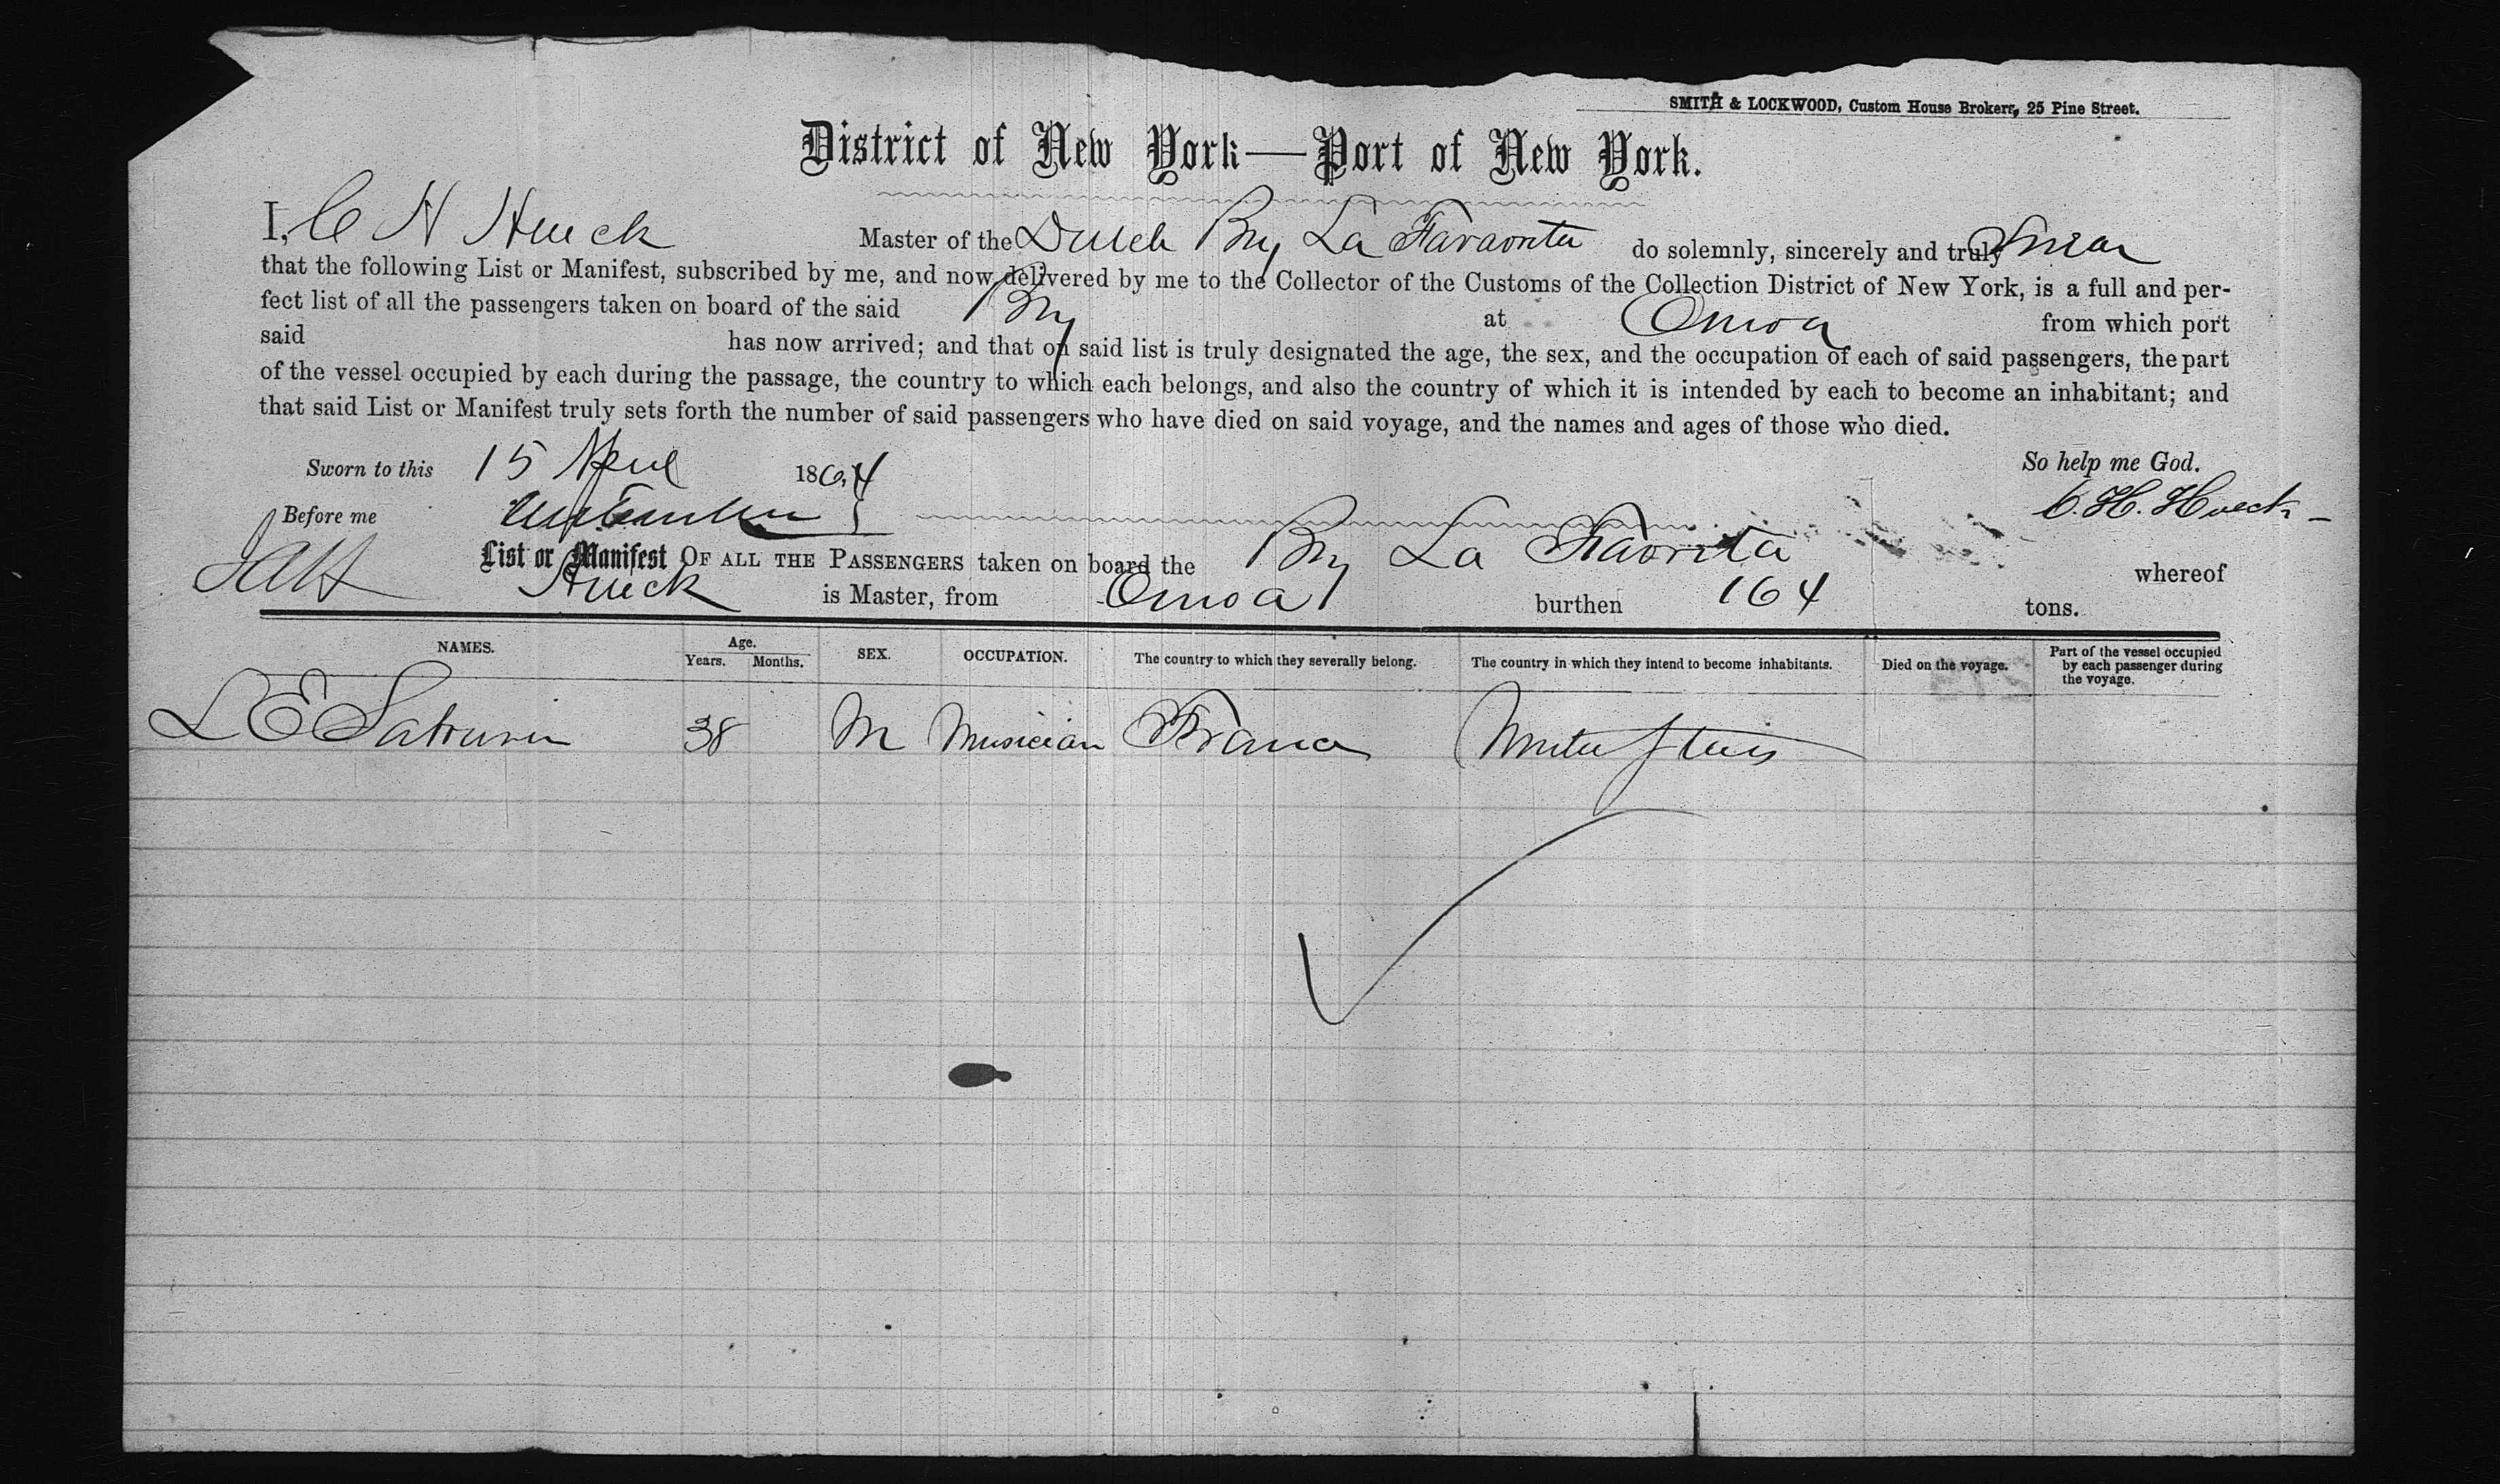 SMITH & LOCKWOOD, Custom House Brokers, 25 Pine Street.
District of New York—Port of New York.
I, C H Hueck Master of the Dutch Brig La Favaorita do solemnly, sincerely and truly Swear
that the following List or Manifest, subscribed by me, and now delivered by me to the Collector of the Customs of the Collection District of New York, is a full and per-
fect list of all the passengers taken on board of the said Brig at Omoa from which port
said has now arrived; and that on said list is truly designated the age, the sex, and the occupation of each of said passengers, the part
of the vessel occupied by each during the passage, the country to which each belongs, and also the country of which it is intended by each to become an inhabitant; and
that said List or Manifest truly sets forth the number of said passengers who have died on said voyage, and the names and ages of those who died.
Sworn to this 15 April 1864 So help me God.
Before me C. H. Hueck
List or Manifest OF ALL THE PASSENGERS taken on board the Brig La Favorita whereof
Hueck is Master, from Omoa burthen 164 tons.
NAMES. Age. Years. Months. SEX. OCCUPATION. The country to which they severally belong. The country in which they intend to become inhabitants. Died on the voyage. Part of the vessel occupied by each passenger during the voyage.
L E 38 M Musician France United States